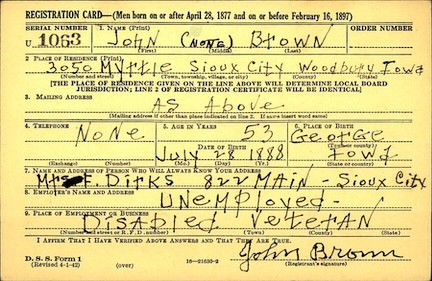 REGISTRATION CARD—(Men born on or after April 28, 1877 and on or before February 16, 1897)
SERIAL NUMBER 1. NAME (Print) ORDER NUMBER
U 1063 John (none) Brown
(First) (Middle) (Last)
2. PLACE OF RESIDENCE (Print)
3050 Myrtle Sioux City Woodbury Iowa
(Number and street) (Town, township, village, or city) (County) (State)
[THE PLACE OF RESIDENCE GIVEN ON THE LINE ABOVE WILL DETERMINE LOCAL BOARD
JURISDICTION; LINE 2 OF REGISTRATION CERTIFICATE WILL BE IDENTICAL]
3. MAILING ADDRESS
As Above
[Mailing address if other than place indicated on line 2. If same insert word same]
4. TELEPHONE 5. AGE IN YEARS 6. PLACE OF BIRTH
None 53 George
DATE OF BIRTH (Town or county)
July 28 1888 Iowa
(Exchange) (Number) (Mo.) (Day) (Yr.) (State or country)
7. NAME AND ADDRESS OF PERSON WHO WILL ALWAYS KNOW YOUR ADDRESS
Mrs F. Dirks 822 MAIN - Sioux City
8. EMPLOYER'S NAME AND ADDRESS
Unemployed -
9. PLACE OF EMPLOYMENT OR BUSINESS
Disabled Veteran
(Number and street or R. F. D. number) (Town) (County) (State)
I AFFIRM THAT I HAVE VERIFIED ABOVE ANSWERS AND THAT THEY ARE TRUE.
John Brown
D. S. S. Form 1
(Revised 4-1-42) (over) 16—21630-2 (Registrant's signature)